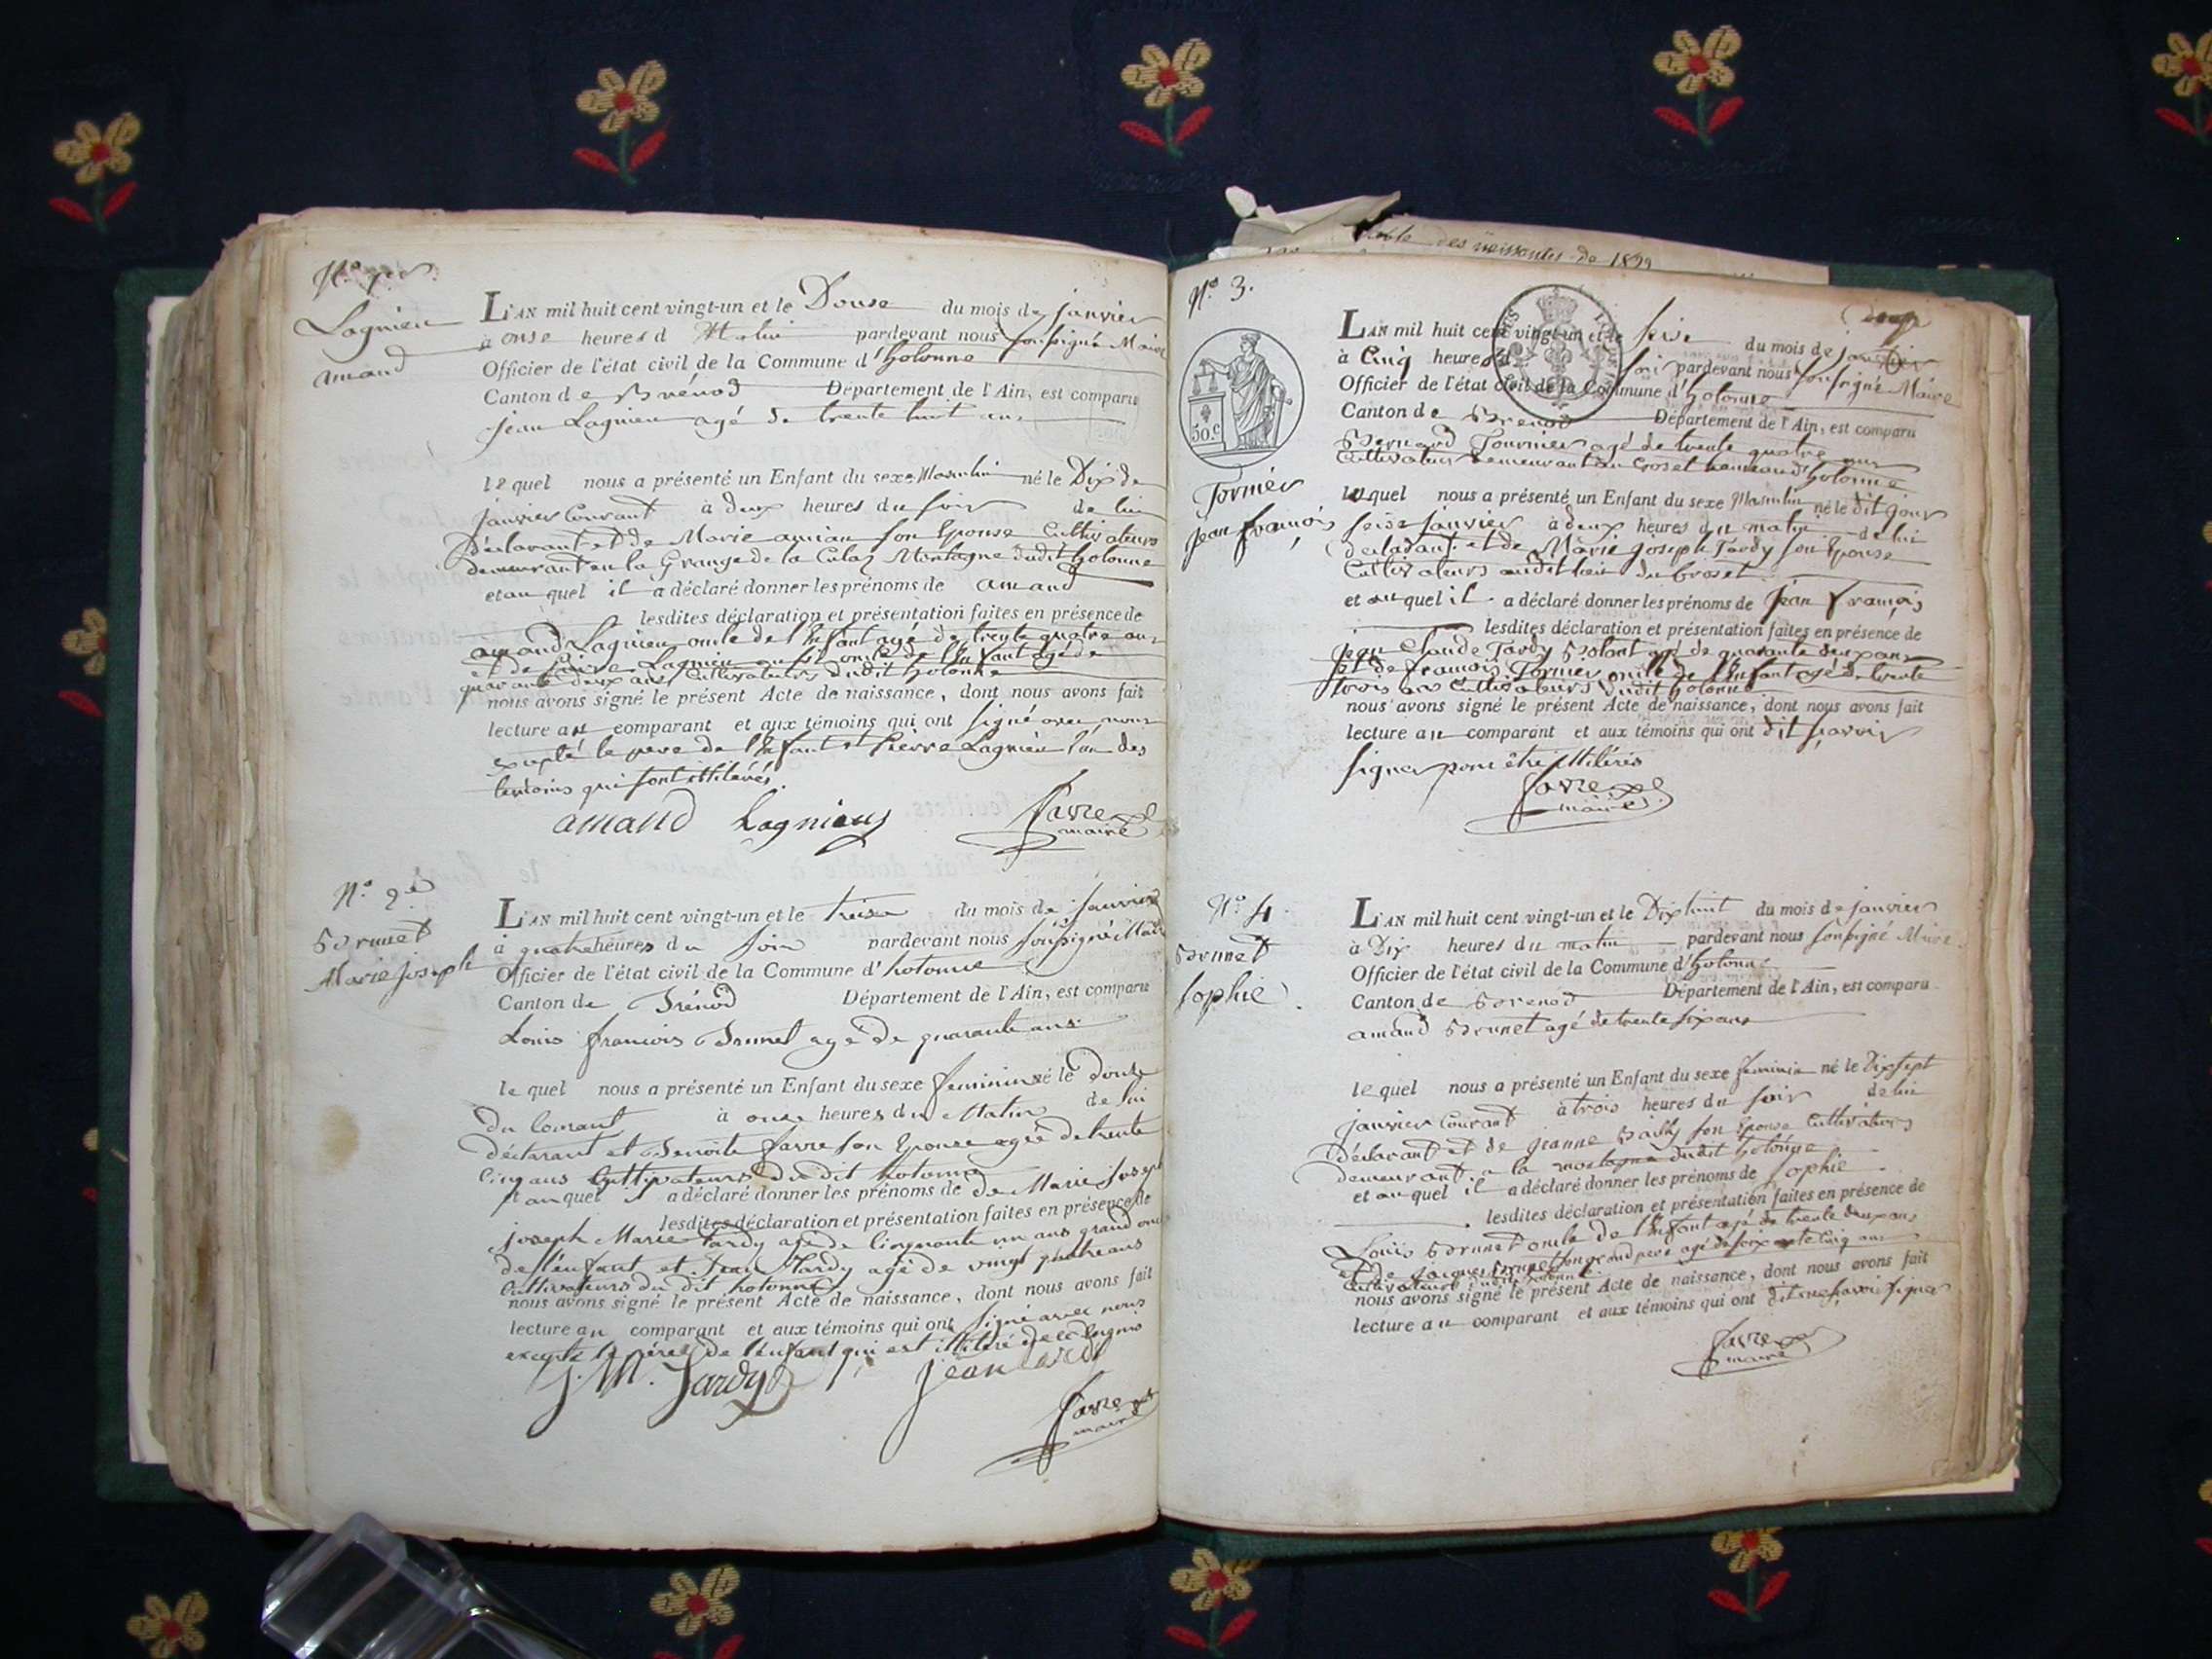 N.o 1er
Lagnieu
amand
L'AN mil huit cent vingt-un et le Douse du mois de janvier
à onse heures d Matin pardevant nous soussigné Maire
Officier de l'état civil de la Commune d'hotonne
Canton de Brénod Département de l'Ain, est comparu
jean Lagnieu agé de trente huit ans
lequel nous a présenté un Enfant du sexe Masculin né le Dix de
janvier Courant à deux heures du soir de lui
déclarant et de Marie amian son Epouse Cultivateurs
demeurant en la Grange de la Culaz Montagne dudit hotonne
et au quel il a déclaré donner les prénoms de amand
lesdites déclaration et présentation faites en présence de
amand Lagnieu oncle de l'Enfant agé de trente quatre ans
et de pierre Lagnieu aussi oncle de l'Enfant agé de
quarante deux ans Cultivateurs dudit hotonne
nous avons signé le présent Acte de naissance, dont nous avons fait
lecture au comparant et aux témoins qui ont signé avec nous
excepté le pere de l'Enfant et Pierre Lagnieu l'un des
temoins qui sont illiterés.
amand Lagnieu
favre
maire
N.o 2.e
Brunet
Marie joseph
L'AN mil huit cent vingt-un et le treise du mois de janvier
à quatre heures du soir pardevant nous soussigné Maire
Officier de l'état civil de la Commune d'hotonne
Canton de Brénod Département de l'Ain, est comparu
Louis françois Brunet agé de quarante ans
le quel nous a présenté un Enfant du sexe feminin né le douse
du Courant à onse heures du Matin de lui
déclarant et Benoite favre son Epouse agée de trente
Cinq ans Cultivateurs du dit hotonne
et au quel il a déclaré donner les prénoms de de Marie Joseph
lesdites déclaration et présentation faites en présence de
joseph Marie tardy agé de Cinquante un ans grand oncle
de l'enfant et Jean Tardy agé de vingt quatre ans
Cultivateurs du dit hotonne
nous avons signé le présent Acte de naissance, dont nous avons fait
lecture au comparant et aux témoins qui ont signé avec nous
excepté le père de l'enfant qui est illitéré de ce enquis
J. M. Tardy
jean tardy
favre
maire
table des naissantes de 1822
N.o 3.
50.c
Tornier
jean françois
deux
L'AN mil huit cent vingt-un et le seise du mois de janvier
à Cinq heures du soir pardevant nous soussigné Maire
Officier de l'état civil de la Commune d'hotonne
Canton de Brenod Département de l'Ain, est comparu
Bernard Tournier agé de trente quatre ans
Cultivateur demeurant au Croset hameau d'hotonne
lequel nous a présenté un Enfant du sexe Masculin né le dit jour
seise janvier à deux heures du matin de lui
declarant et de Marie joseph Tardy son Epouse
Cultivateurs audit lieu du Croset
et au quel il a déclaré donner les prénoms de jean françois
lesdites déclaration et présentation faites en présence de
jean Claude Tardy Bolant agé de quarante deux ans
et de françois Tornier oncle de l'Enfant agé de trente
trois ans Cultivateurs dudit hotonne
nous avons signé le présent Acte de naissance, dont nous avons fait
lecture au comparant et aux témoins qui ont dit savoir
signer pour être illitérés
favre
maire
N.o 4
Brunet
sophie
L'AN mil huit cent vingt-un et le Dixhuit du mois de janvier
à Dix heures du matin pardevant nous soussigné Maire
Officier de l'état civil de la Commune d'hotonne
Canton de Brenod Département de l'Ain, est comparu
amand Brunet agé de trente six ans
lequel nous a présenté un Enfant du sexe feminin né le Dixsept
janvier Courant à trois heures du soir de lui
déclarant et de jeanne Bailly son Epouse Cultivateurs
demeurant à la montagne dudit hotonne
et au quel il a déclaré donner les prénoms de sophie
lesdites déclaration et présentation faites en présence de
Louis Brunet oncle de l'Enfant agé de trente deux ans
et de jacques Brunet son grand pere agé de soixante Cinq ans
Cultivateurs dudit hotonne
nous avons signé le présent Acte de naissance, dont nous avons fait
lecture au comparant et aux témoins qui ont dit ne savoir signer
favre
maire